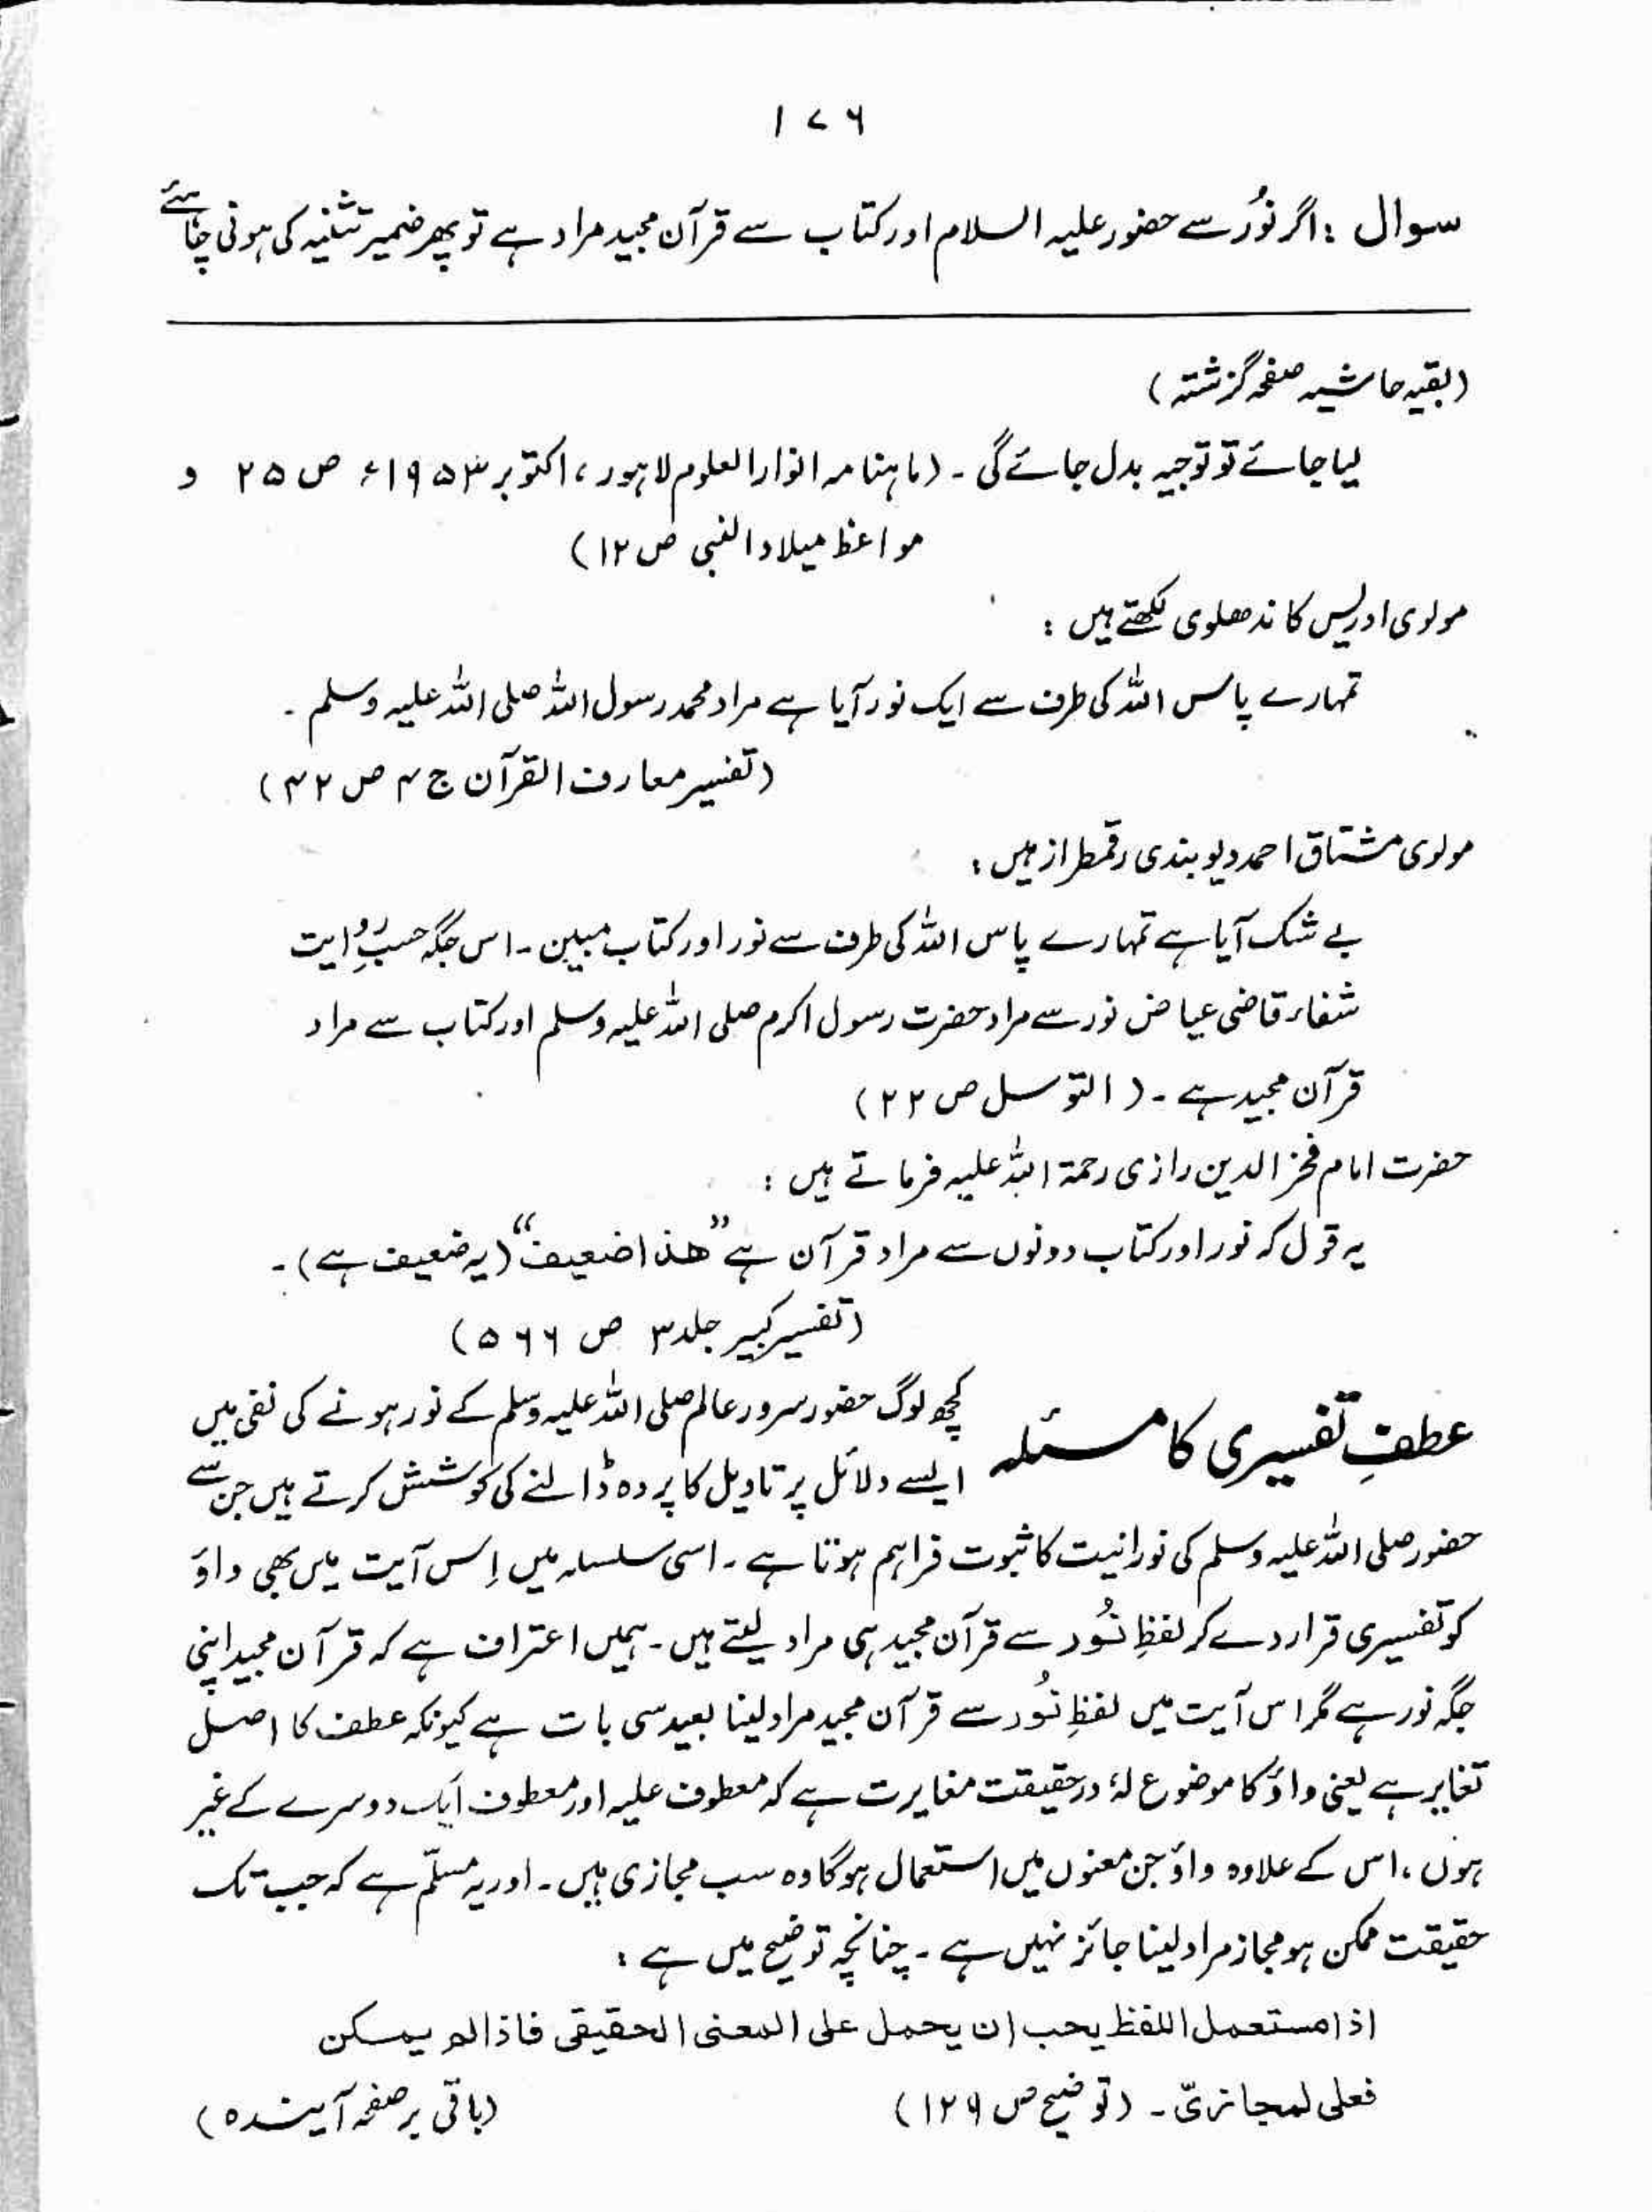 ۱۷۶
سوال : اگر نُور سے حضور علیہ السلام اور کتاب سے قرآن مجید مراد ہے تو پھر ضمیر تثنیہ کی ہونی چاہئے
(بقیہ حاشیہ صفحہ گزشتہ)
لیا جائے تو توجیہ بدل جائے گی ۔ (ماہنامہ انوار العلوم لاہور ، اکتوبر ۱۹۵۳ء ص ۲۵ و
مواعظ میلاد النبی ص ۱۲)
مولوی ادریس کاندھلوی لکھتے ہیں :
تمہارے پاس اللہ کی طرف سے ایک نور آیا ہے مراد محمد رسول اللہ صلی اللہ علیہ وسلم ۔
(تفسیر معارف القرآن ج ۴ ص ۴۲)
مولوی مشتاق احمد دیوبندی رقمطراز ہیں :
بے شک آیا ہے تمہارے پاس اللہ کی طرف سے نور اور کتاب مبین ۔ اس جگہ حسبِ روایت
شفاء قاضی عیاض نور سے مراد حضرت رسول اکرم صلی اللہ علیہ وسلم اور کتاب سے مراد
قرآن مجید ہے ۔ (التوسل ص ۲۲)
حضرت امام فخر الدین رازی رحمۃ اللہ علیہ فرماتے ہیں :
یہ قول کہ نور اور کتاب دونوں سے مراد قرآن ہے "ھذا ضعیف" (یہ ضعیف ہے) ۔
(تفسیر کبیر جلد ۳ ص ۵۶۶)
عطفِ تفسیری کا مسئلہ کچھ لوگ حضور سرور عالم صلی اللہ علیہ وسلم کے نور ہونے کی نفی میں
ایسے دلائل پر تاویل کا پردہ ڈالنے کی کوشش کرتے ہیں جن سے
حضور صلی اللہ علیہ وسلم کی نورانیت کا ثبوت فراہم ہوتا ہے ۔ اسی سلسلہ میں اِس آیت میں بھی واؤ
کو تفسیری قرار دے کر لفظِ نُور سے قرآن مجید ہی مراد لیتے ہیں ۔ ہمیں اعتراف ہے کہ قرآن مجید اپنی
جگہ نور ہے مگر اس آیت میں لفظِ نُور سے قرآن مجید مراد لینا بعید سی بات ہے کیونکہ عطف کا اصل
تغایر ہے یعنی واؤ کا موضوع لہٗ درحقیقت مغایرت ہے کہ معطوف علیہ اور معطوف ایک دوسرے کے غیر
ہوں ، اس کے علاوہ واؤ جن معنوں میں استعمال ہوگا وہ سب مجازی ہیں ۔ اور یہ مسلّم ہے کہ جب تک
حقیقت ممکن ہو مجاز مراد لینا جائز نہیں ہے ۔ چنانچہ توضیح میں ہے :
اذا مستعمل اللفظ یحب ان یحمل علی المعنی الحقیقی فاذا لم یمکن
فعلی لمجازیّ ۔ (توضیح ص ۱۲۹)
(باقی بر صفحہ آیندہ)